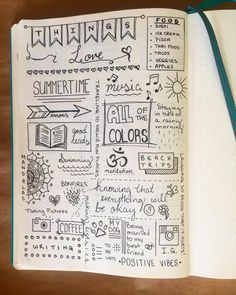 THINGS
i Love
FOOD
SUSHI
ICE CREAM
PIZZA
THAI FOOD
TACOS
VEGGIES
APPLES
SUMMERTIME
music
arrows
ALL
OF THE
COLORS
Staying
in bed on
a rainy
morning
good
reads
Swimming
meditation
BEACH
TRIPS
MANDALAS
BONFIRES
Knowing that
everything will
be okay
Taking Pictures
COFFEE
WRITING
MY
DOG
TO
DO
LISTS
Being
married
to my
best
friend
I.G.
•POSITIVE VIBES•